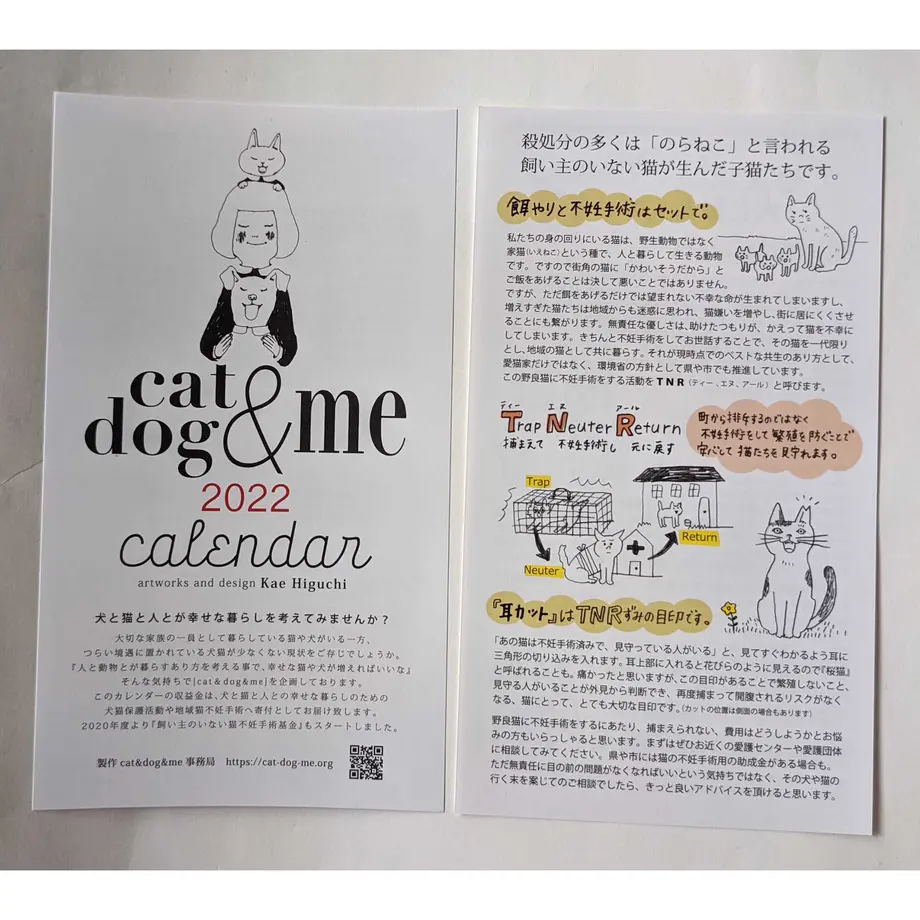 cat
dog & me
2022
calendar
artworks and design Kae Higuchi
犬と猫と人とが幸せな暮らしを考えてみませんか？
大切な家族の一員として暮らしている猫や犬がいる一方、
つらい境遇に置かれている犬猫が少なくない現状をご存じでしょうか。
『人と動物とが暮らすあり方を考える事で、幸せな猫や犬が増えればいいな』
そんな気持ちで[cat&dog&me]を企画しております。
このカレンダーの収益金は、犬と猫と人との幸せな暮らしのための
犬猫保護活動や地域猫不妊手術へ寄付としてお届け致します。
2020年度より『飼い主のいない猫不妊手術基金』もスタートしました。
製作 cat&dog&me 事務局 https://cat-dog-me.org
殺処分の多くは「のらねこ」と言われる
飼い主のいない猫が生んだ子猫たちです。
餌やりと不妊手術はセットで。
私たちの身の回りにいる猫は、野生動物ではなく
家猫(いえねこ)という種で、人と暮らして生きる動物
です。ですので街角の猫に「かわいそうだから」と
ご飯をあげることは決して悪いことではありません。
ですが、ただ餌をあげるだけでは望まれない不幸な命が生まれてしまいますし、
増えすぎた猫たちは地域からも迷惑に思われ、猫嫌いを増やし、街に居にくくさせ
ることにも繋がります。無責任な優しさは、助けたつもりが、かえって猫を不幸に
してしまいます。きちんと不妊手術をしてお世話することで、その猫を一代限り
とし、地域の猫として共に暮らす。それが現時点でのベストな共生のあり方として、
愛猫家だけではなく、環境省の方針として県や市でも推進しています。
この野良猫に不妊手術をする活動をTNR(ティー、エヌ、アール)と呼びます。
ティー エヌ アール
Trap Neuter Return
捕まえて 不妊手術し 元に戻す
町から排斥するのではなく
不妊手術をして繁殖を防ぐことで
安心して猫たちを見守れます。
Trap
Return
Neuter
『耳カット』はTNRずみの目印です。
「あの猫は不妊手術済みで、見守っている人がいる」と、見てすぐわかるよう耳に
三角形の切り込みを入れます。耳上部に入れると花びらのように見えるので『桜猫』
と呼ばれることも。痛かったと思いますが、この目印があることで繁殖しないこと、
見守る人がいることが外見から判断でき、再度捕まって開腹されるリスクがなく
なる、猫にとって、とても大切な目印です。(カットの位置は側面の場合もあります)
野良猫に不妊手術をするにあたり、捕まえられない、費用はどうしようかとお悩
みの方もいらっしゃると思います。まずはぜひお近くの愛護センターや愛護団体
に相談してみてください。県や市には猫の不妊手術用の助成金がある場合も。
ただ無責任に目の前の問題がなくなればいいという気持ちではなく、その犬や猫の
行く末を案じてのご相談でしたら、きっと良いアドバイスを頂けると思います。